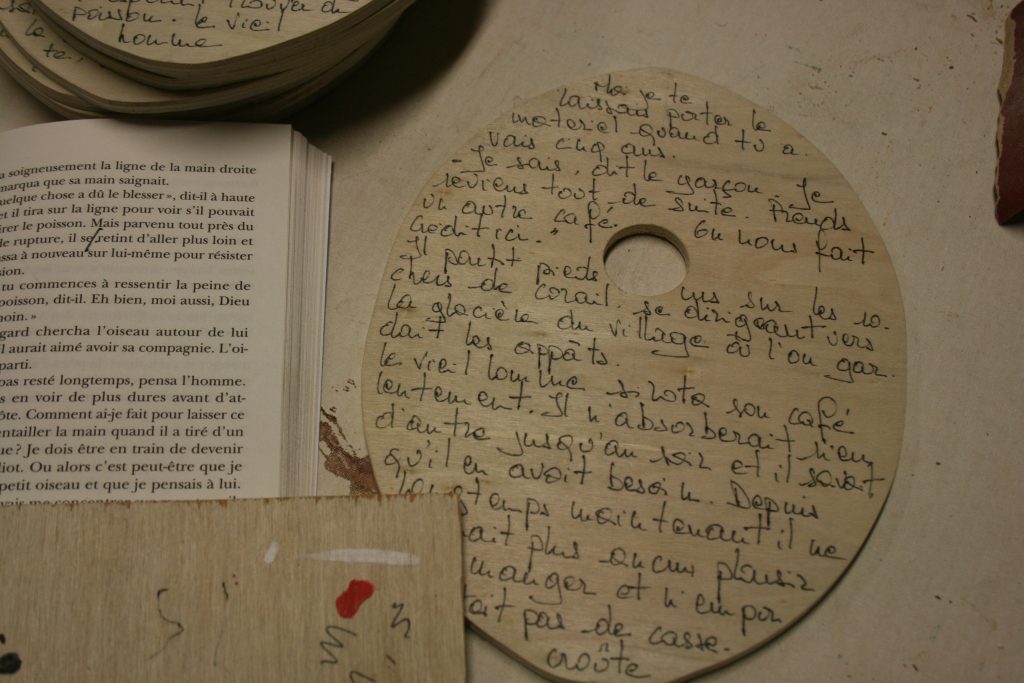 trouver du
poisson. le vieil
homme
a soigneusement la ligne de la main droite
marqua que sa main saignait.
uelque chose a dû le blesser », dit-il à haute
et il tira sur la ligne pour voir s'il pouvait
rer le poisson. Mais parvenu tout près du
de rupture, il se retint d'aller plus loin et
ssa à nouveau sur lui-même pour résister
sion.
tu commences à ressentir la peine de
poisson, dit-il. Eh bien, moi aussi, Dieu
moin. »
gard chercha l'oiseau autour de lui
l aurait aimé avoir sa compagnie. L'oi-
parti.
pas resté longtemps, pensa l'homme.
s en voir de plus dures avant d'at-
ôte. Comment ai-je fait pour laisser ce
entailler la main quand il a tiré d'un
ue ? Je dois être en train de devenir
liot. Ou alors c'est peut-être que je
petit oiseau et que je pensais à lui.
je te
laissais porter le
materiel quand tu a.
vais cinq ans.
- Je sais, dit le garçon. Je
reviens tout de suite. Prends
un autre café. On nous fait
crédit ici. "
Il partit pieds nus sur les ro.
chers de corail. se dirigeant vers
la glacière du village où l'on gar.
dait les appâts.
le vieil homme sirota son café
lentement. Il n'absorberait rien
d'autre jusqu'au soir et il savait
qu'il en avait besoin. Depuis
longtemps maintenant il ne
ait plus aucun plaisir
manger et n'empor
tait pas de casse.
croûte